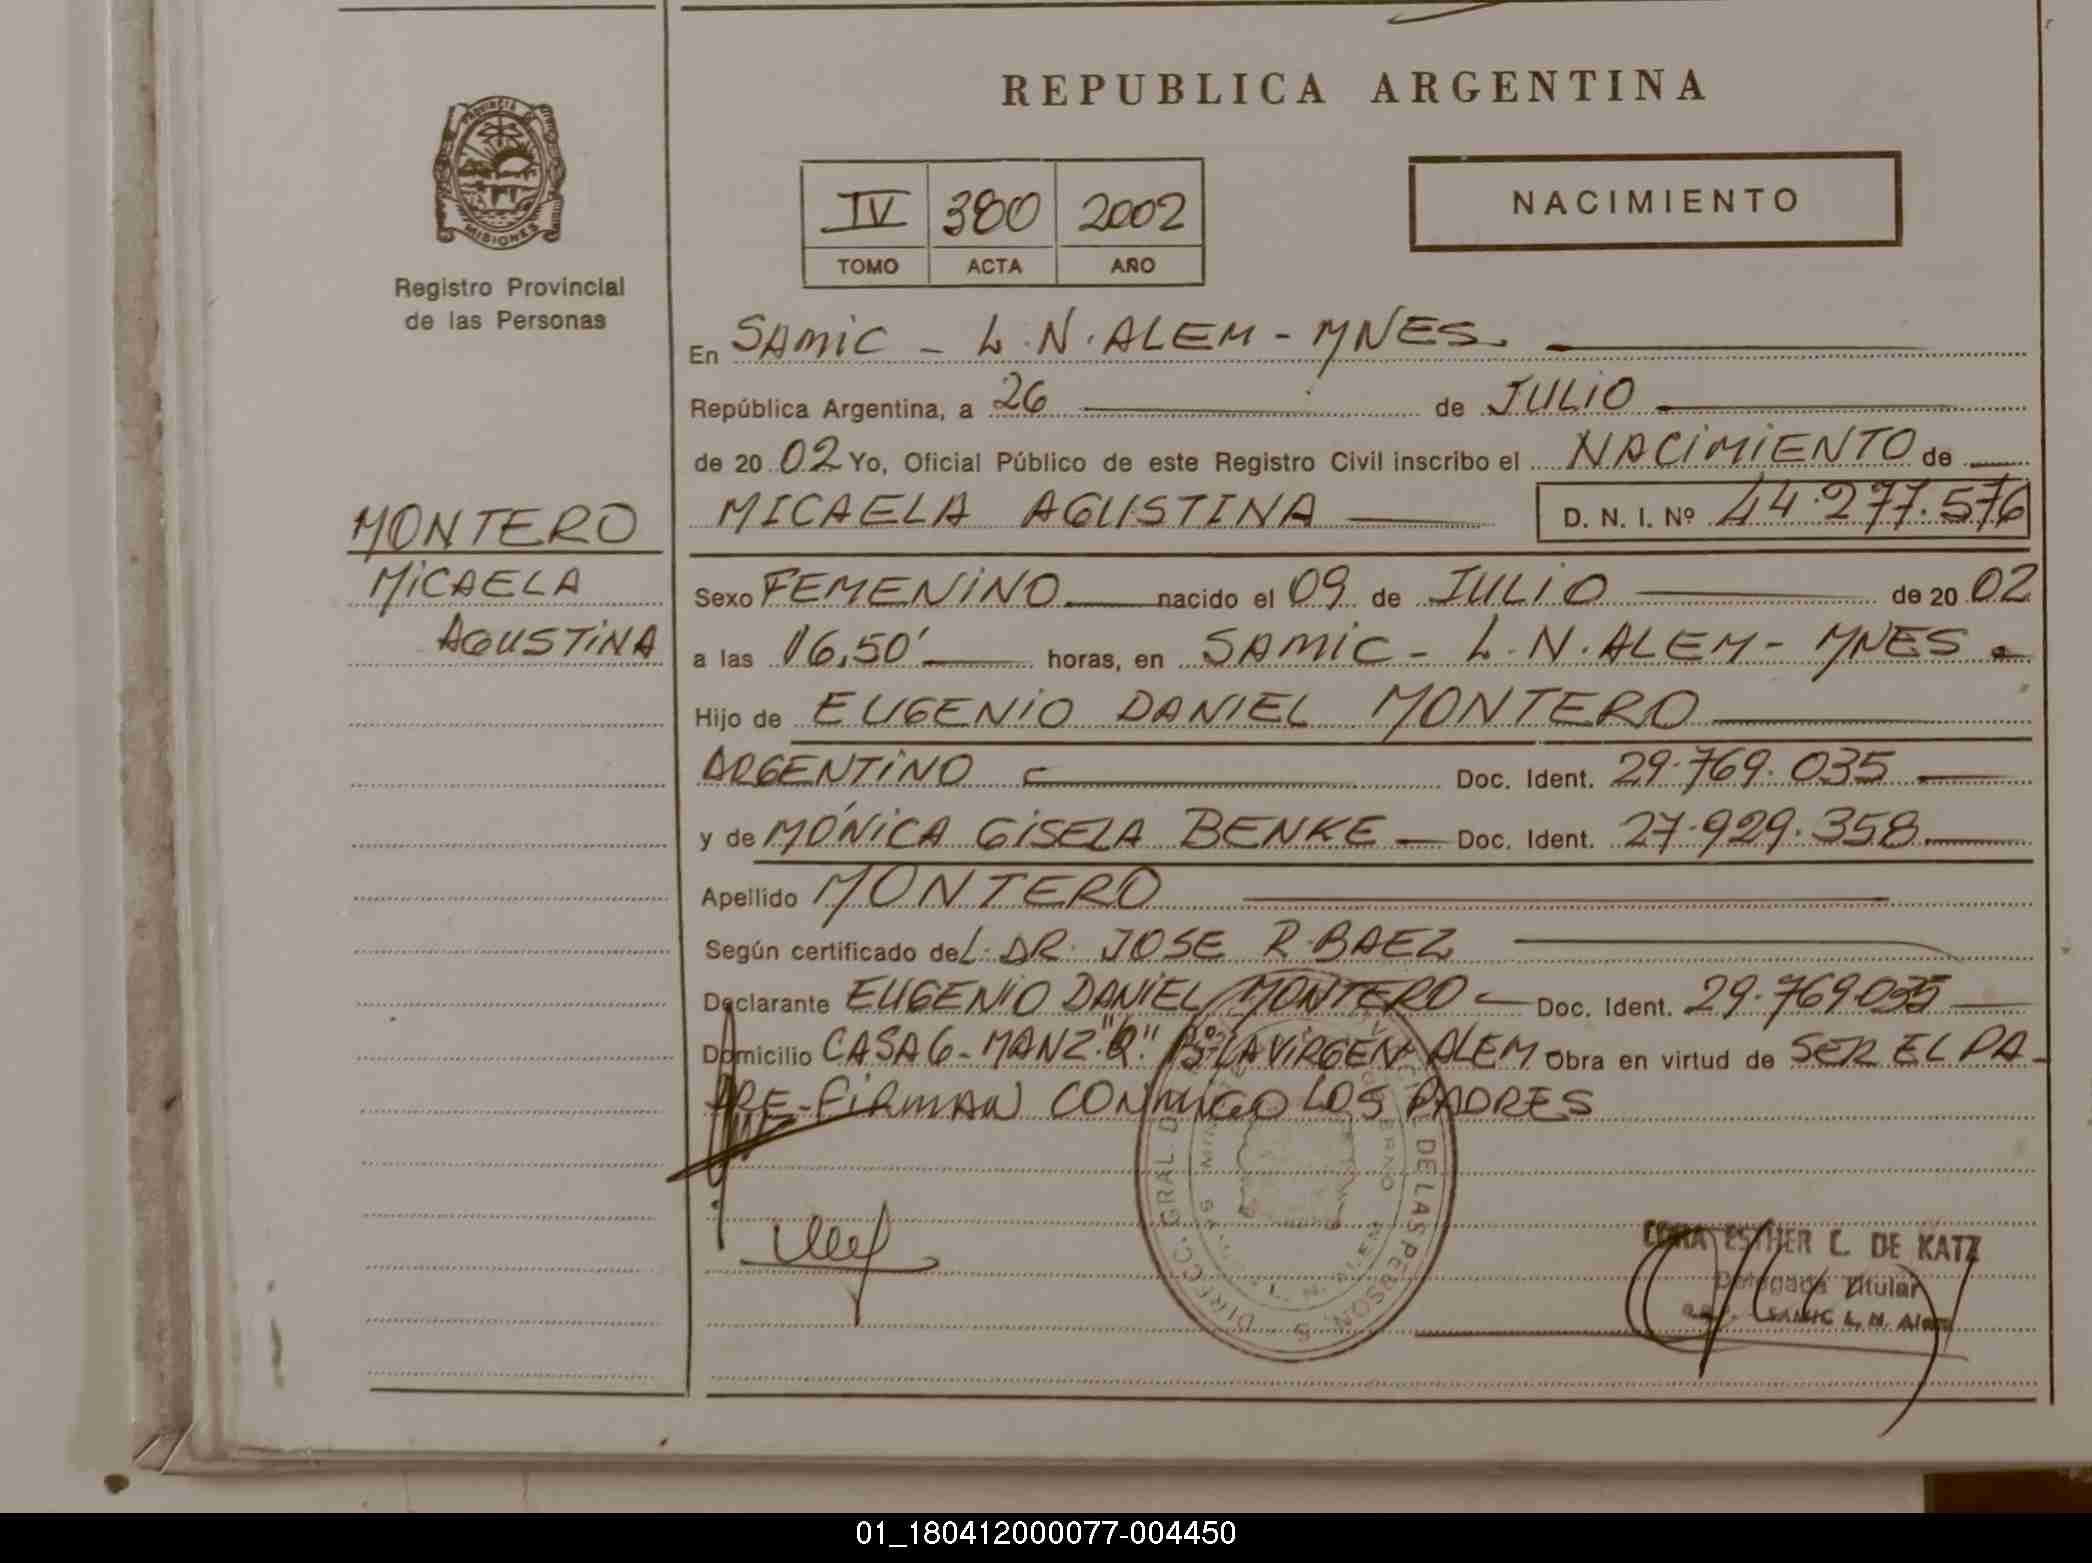 REPUBLICA ARGENTINA
PROVINCIA DE
MISIONES
Registro Provincial
de las Personas
IV 380 2002
TOMO ACTA AÑO
NACIMIENTO
En SAMIC - L.N. ALEM - MNES.
República Argentina, a 26 de JULIO
de 20 02 Yo, Oficial Público de este Registro Civil inscribo el NACIMIENTO de
MICAELA AGUSTINA D. N. I. Nº 44.277.576
MONTERO
MICAELA
AGUSTINA
Sexo FEMENINO nacido el 09 de JULIO de 20 02
a las 16,50' horas, en SAMIC - L.N. ALEM - MNES.
Hijo de EUGENIO DANIEL MONTERO
ARGENTINO Doc. Ident. 29.769.035
y de MÓNICA GISELA BENKE Doc. Ident. 27.929.358
Apellido MONTERO
Según certificado del. DR. JOSE R. BAEZ
Declarante EUGENIO DANIEL MONTERO Doc. Ident. 29.769.035
Domicilio CASA 6 - MANZ. "Q" Bº LA VIRGEN - ALEM Obra en virtud de SER EL PA-
DRE - FIRMAN CONMIGO LOS PADRES
DIRECC. GRAL. DE LAS PERSONAS
ESTHER C. DE KATZ
Delegada Titular
SAMIC L. N. Alem
01_180412000077-004450